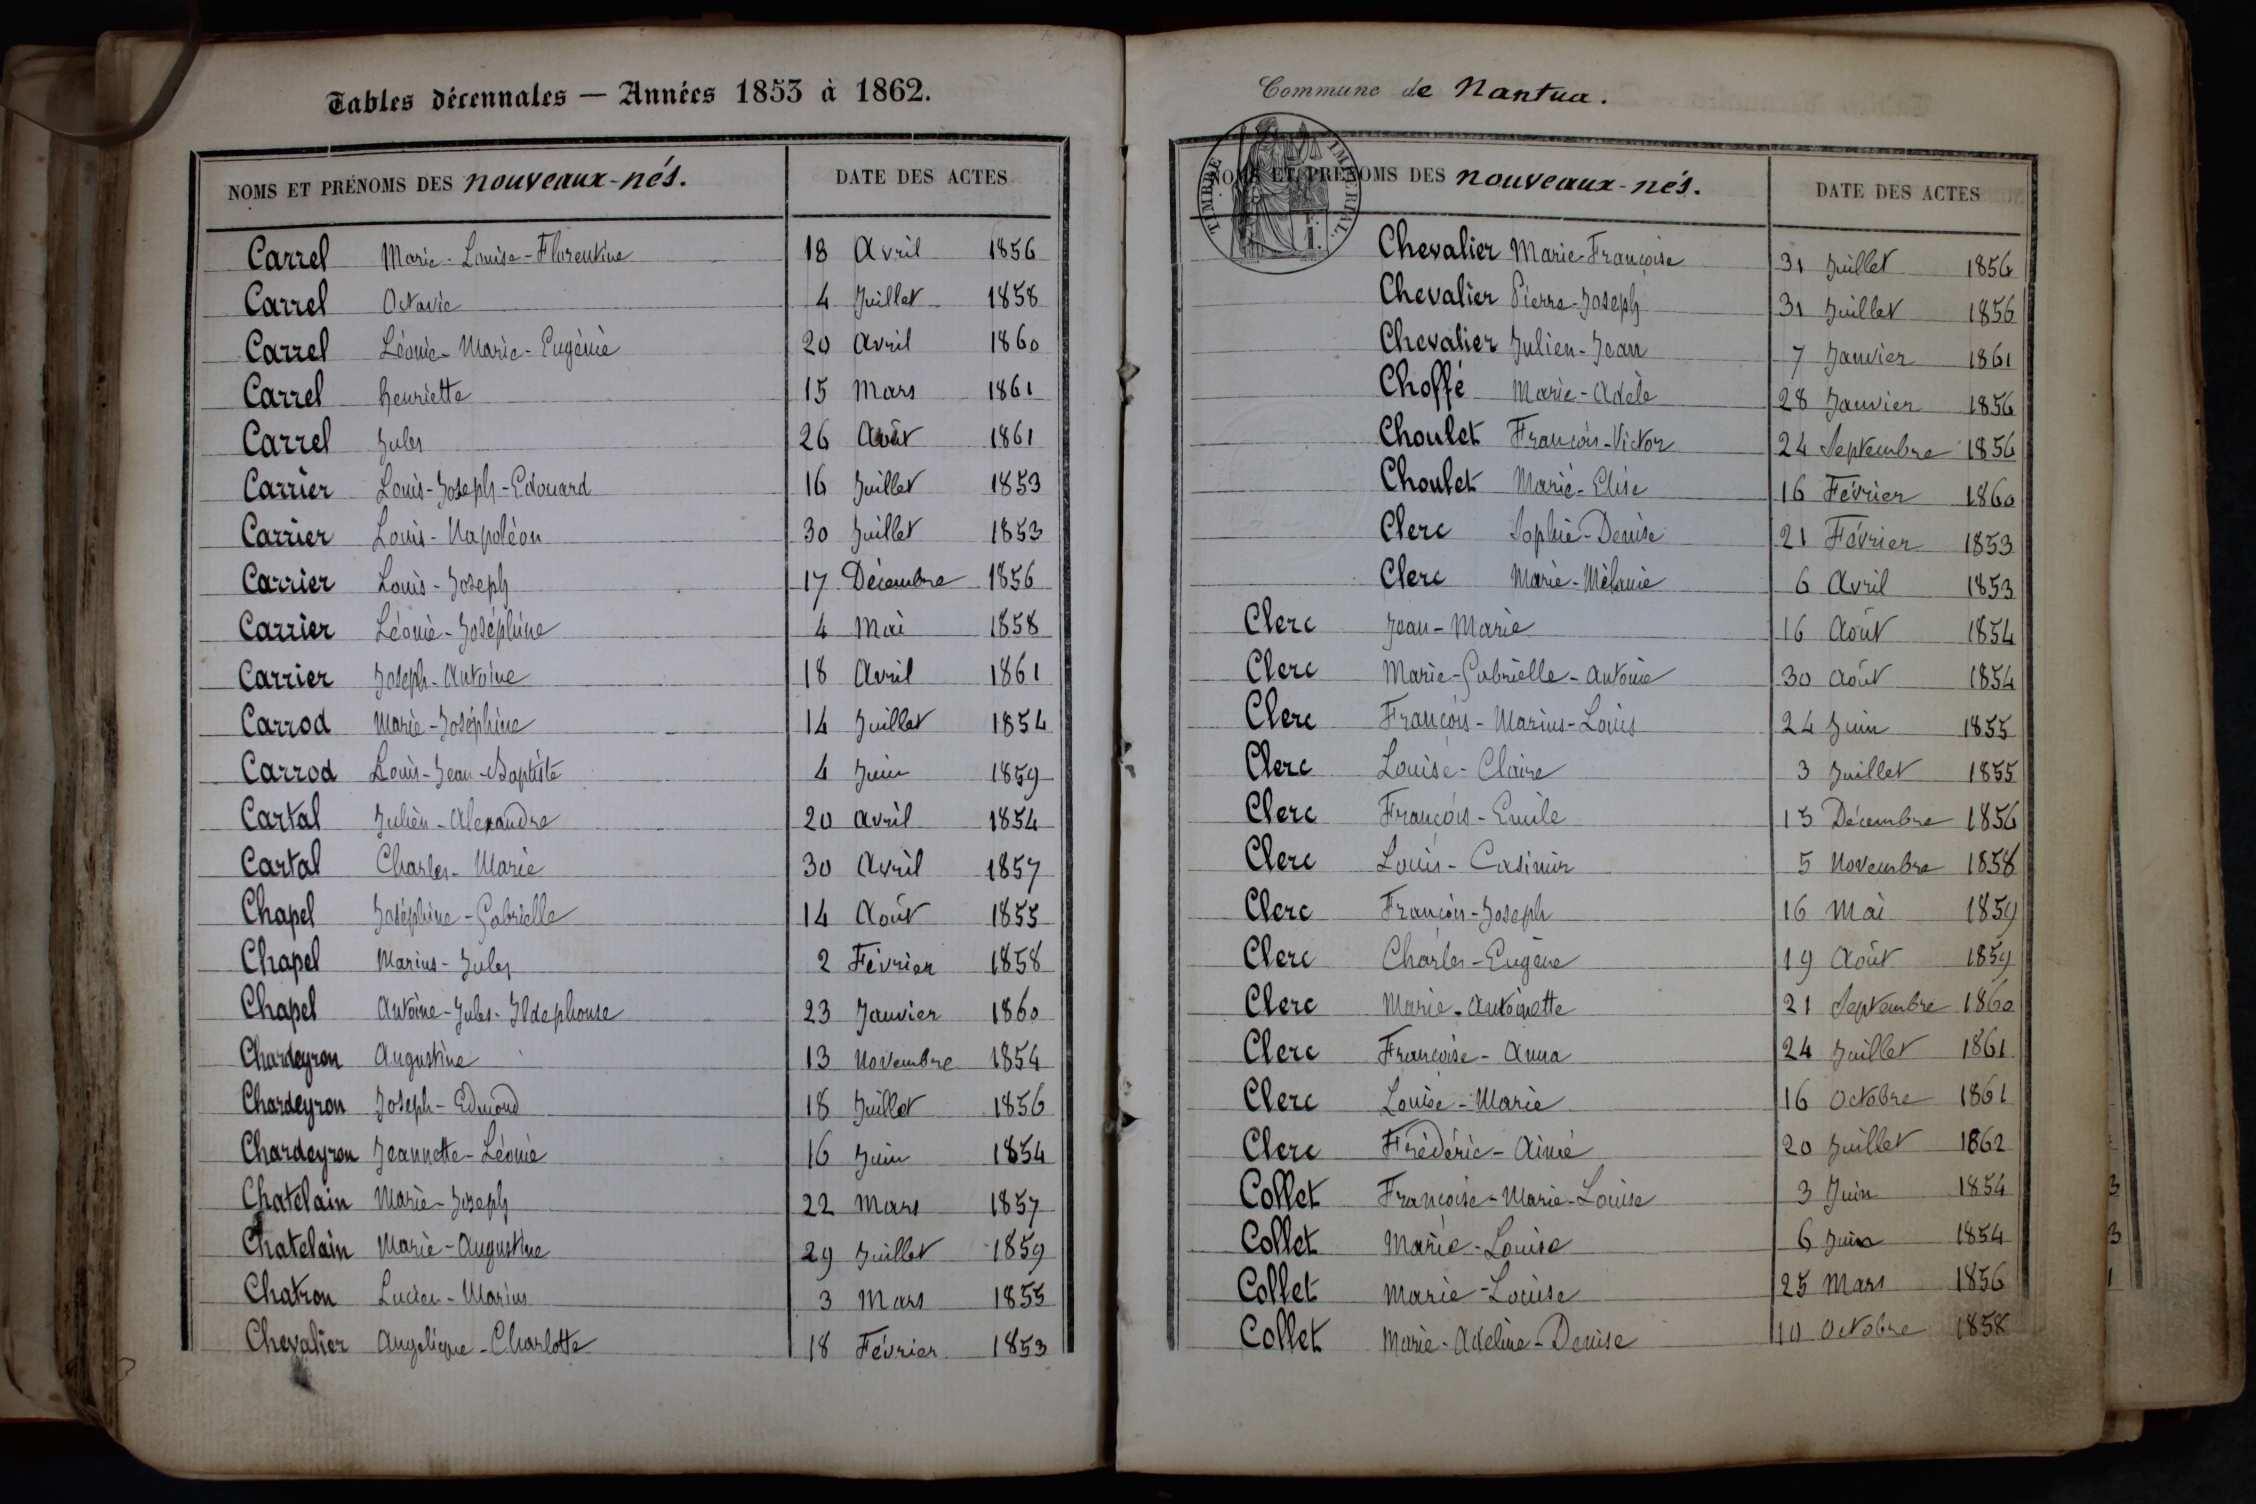 Tables décennales — Années 1853 à 1862.
NOMS ET PRÉNOMS DES nouveaux-nés. DATE DES ACTES
Carrel Marie-Louise-Florentine 18 Avril 1856
Carrel Octavie 4 Juillet 1858
Carrel Léonie-Marie-Eugénie 20 Avril 1860
Carrel Henriette 15 Mars 1861
Carrel Jules 26 Août 1861
Carrier Louis-Joseph-Edouard 16 Juillet 1853
Carrier Louis-Napoléon 30 Juillet 1853
Carrier Louis-Joseph 17 Décembre 1856
Carrier Léonie-Joséphine 4 Mai 1858
Carrier Joseph-Antoine 18 Avril 1861
Carrod Marie-Joséphine 14 Juillet 1854
Carrod Louis-Jean-Baptiste 4 Juin 1859
Cartal Julien-Alexandre 20 Avril 1854
Cartal Charles-Marie 30 Avril 1857
Chapel Joséphine-Gabrielle 14 Août 1855
Chapel Marius-Jules 2 Février 1858
Chapel Antoine-Jules-Ildephonse 23 Janvier 1860
Chardeyron Augustine 13 Novembre 1854
Chardeyron Joseph-Edmond 18 Juillet 1856
Chardeyron Jeannette-Léonie 16 Juin 1854
Chatelain Marie-Joseph 22 Mars 1857
Chatelain Marie-Augustine 29 Juillet 1859
Chatron Lucien-Marius 3 Mars 1855
Chevalier Angélique-Charlotte 18 Février 1853
Commune de Nantua.
TIMBRE IMPERIAL
NOMS ET PRÉNOMS DES nouveaux-nés. DATE DES ACTES
Chevalier Marie-Françoise 31 Juillet 1856
Chevalier Pierre-Joseph 31 Juillet 1856
Chevalier Julien-Jean 7 Janvier 1861
Choffé Marie-Adèle 28 Janvier 1856
Choulet François-Victor 24 Septembre 1856
Choulet Marie-Elise 16 Février 1860
Clerc Sophie-Denise 21 Février 1853
Clerc Marie-Mélanie 6 Avril 1853
Clerc Jean-Marie 16 Août 1854
Clerc Marie-Gabrielle-Antonie 30 Août 1854
Clerc François-Marius-Louis 24 Juin 1855
Clerc Louise-Claire 3 Juillet 1855
Clerc François-Emile 15 Décembre 1856
Clerc Louis-Casimir 5 Novembre 1858
Clerc François-Joseph 16 Mai 1859
Clerc Charles-Eugène 19 Août 1859
Clerc Marie-Antoinette 21 Septembre 1860
Clerc Françoise-Anna 24 Juillet 1861
Clerc Louise-Marie 16 Octobre 1861
Clerc Frédéric-Aimé 20 Juillet 1862
Collet Françoise-Marie-Louise 3 Juin 1854
Collet Marie-Louise 6 Juin 1854
Collet Marie-Louise 25 Mars 1856
Collet Marie-Adeline-Denise 10 Octobre 1858